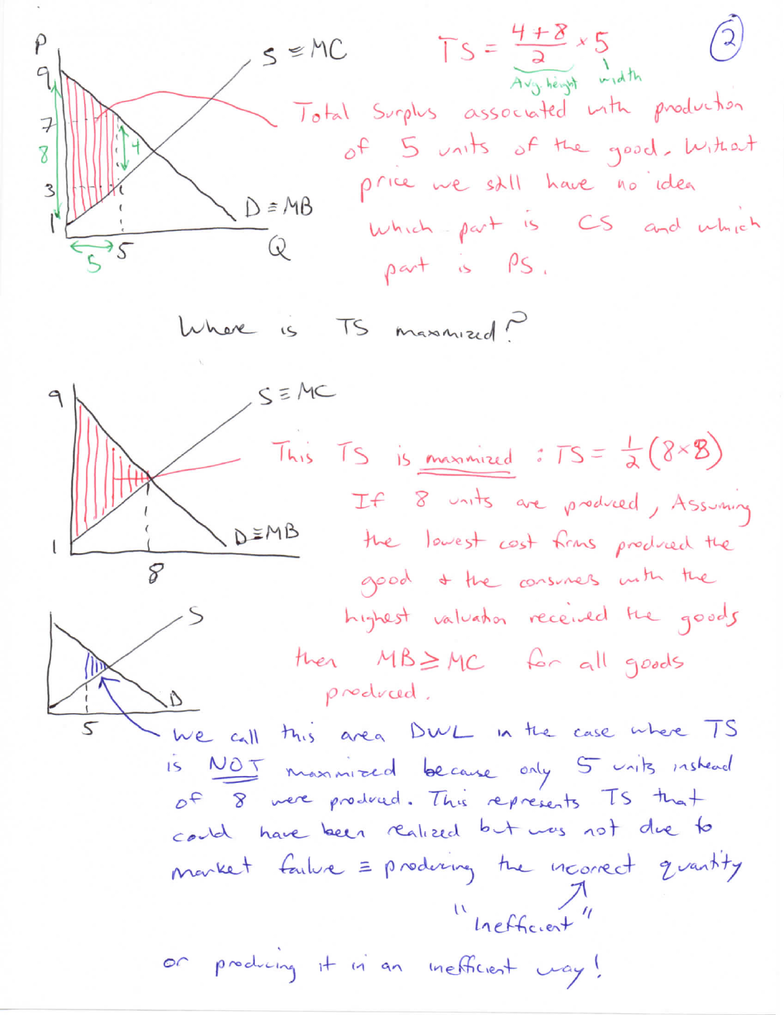 P
S ≡ MC
TS = (4+8)/2 × 5
2
Avg. height width
9
7
8
4
3
1
D ≡ MB
Q
5
5
Total Surplus associated with production
of 5 units of the good. Without
price we still have no idea
which part is CS and which
part is PS.
Where is TS maximized?
9
S ≡ MC
This TS is maximized : TS = 1/2 (8×8)
If 8 units are produced, Assuming
the lowest cost firms produced the
good & the consumers with the
highest valuation received the goods
then MB ≥ MC for all goods
produced.
D ≡ MB
1
8
S
D
5
We call this area DWL in the case where TS
is NOT maximized because only 5 units instead
of 8 were produced. This represents TS that
could have been realized but was not due to
market failure ≡ producing the incorrect quantity
"Inefficient"
or producing it in an inefficient way!